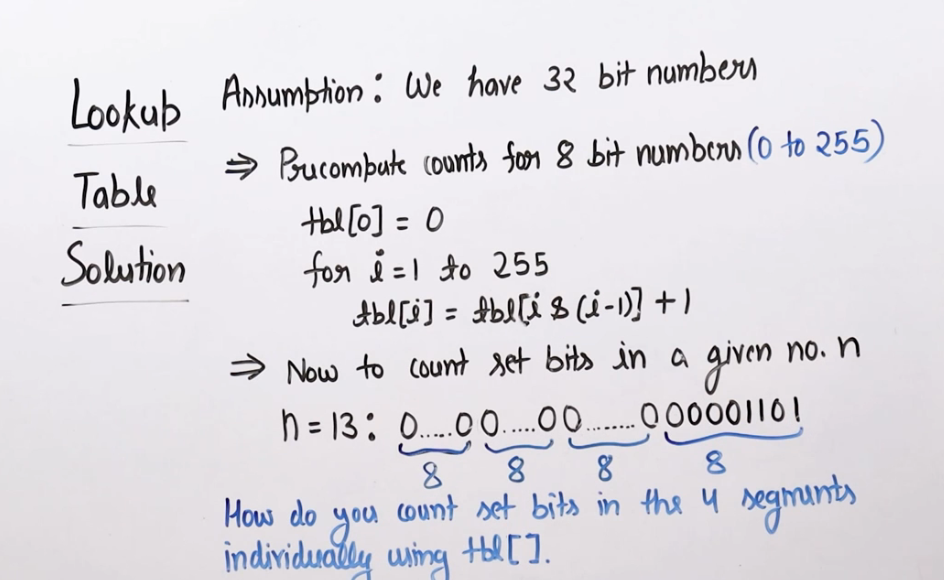 Lookup
Table
Solution
Assumption: We have 32 bit numbers
⇒ Precompute counts for 8 bit numbers (0 to 255)
tbl[0] = 0
for i=1 to 255
tbl[i] = tbl[i & (i-1)] + 1
⇒ Now to count set bits in a given no. n
n = 13: 0.....0 0.....0 0........0 00001101
8 8 8 8
How do you count set bits in the 4 segments
individually using tbl[].